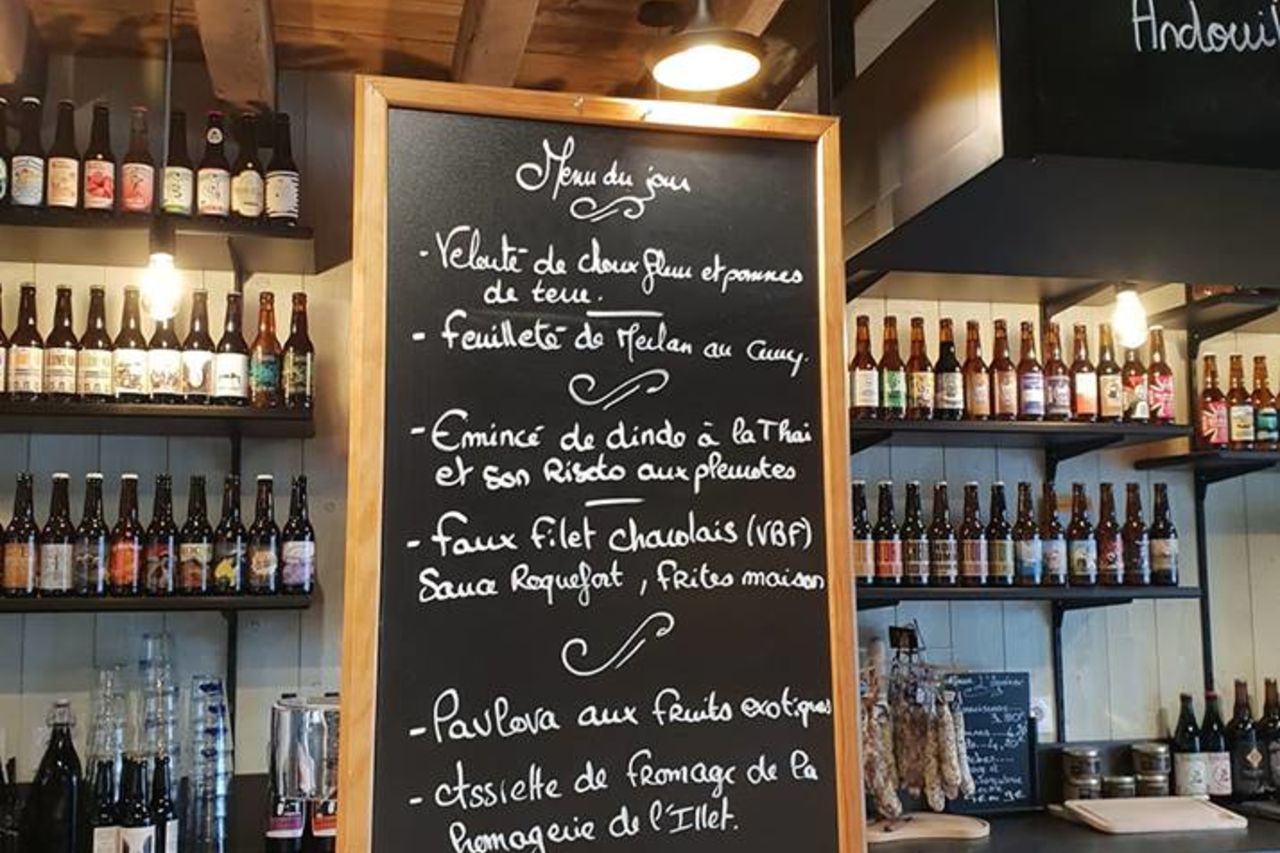 Menu du jour
- Velouté de choux fleur et pommes
de terre.
- Feuilleté de Merlan au Curry.
- Emincé de dinde à la Thai
et son Risoto aux pleurotes
- Faux Filet charolais (VBF)
Sauce Roquefort, frites maison
- Pavlova aux fruits exotiques
- Assiette de fromage de la
fromagerie de l'Illet.